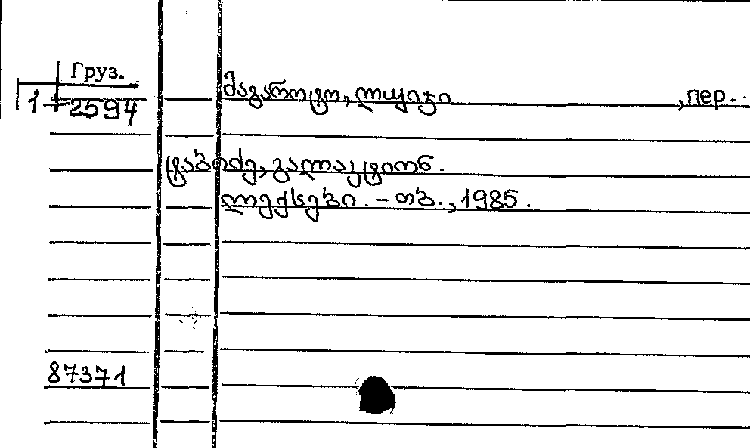 Груз.
1-2594
მაგაროტო, ლუიჯი, пер.
ტაბიძე, გალაკტიონ.
ლექსები. - თბ., 1985.
87371